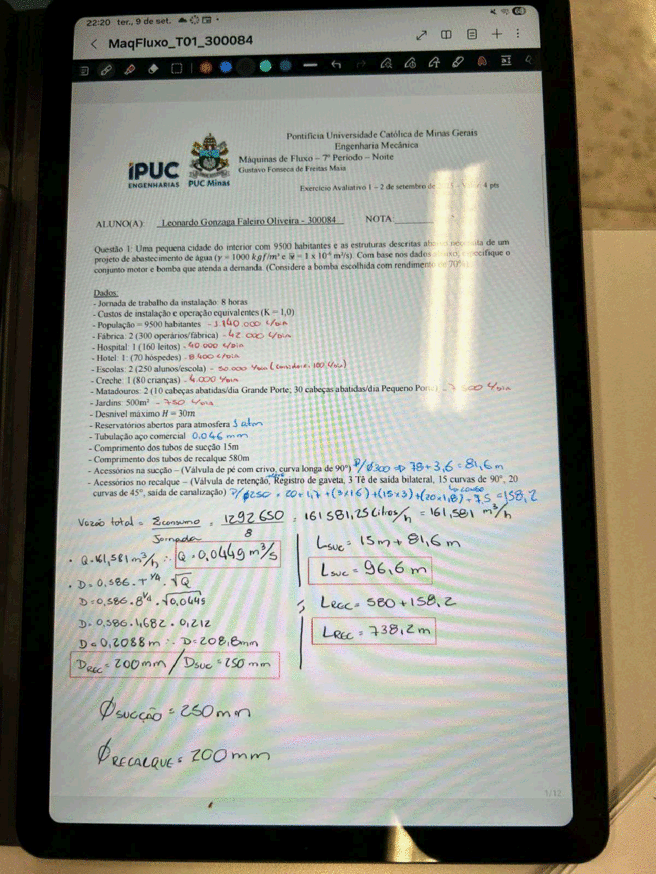 22:20 ter., 9 de set.
64
MaqFluxo_T01_300084
Pontifícia Universidade Católica de Minas Gerais
Engenharia Mecânica
Máquinas de Fluxo – 7º Período – Noite
Gustavo Fonseca de Freitas Maia
iPUC
ENGENHARIAS
PUC Minas
Exercício Avaliativo 1 – 2 de setembro de 4 pts
ALUNO(A): Leonardo Gonzaga Faleiro Oliveira - 300084 NOTA:
Questão 1: Uma pequena cidade do interior com 9500 habitantes e as estruturas descritas de um
projeto de abastecimento de água (γ = 1000 kgf/m³ e = 1 x 10⁻⁶ m²/s). Com base nos dados especifique o
conjunto motor e bomba que atenda a demanda. (Considere a bomba escolhida com rendimento de 70%).
Dados:
- Jornada de trabalho da instalação: 8 horas
- Custos de instalação e operação equivalentes (K = 1,0)
- População = 9500 habitantes - 1.140.000 L/dia
- Fábrica: 2 (300 operários/fábrica) - 42.000 L/dia
- Hospital: 1 (160 leitos) - 40.000 L/dia
- Hotel: 1: (70 hóspedes) - 8.400 L/dia
- Escolas: 2 (250 alunos/escola) - 50.000 L/dia (consider. 100 L/dia)
- Creche: 1 (80 crianças) - 4.000 L/dia
- Matadouros: 2 (10 cabeças abatidas/dia Grande Porte; 30 cabeças abatidas/dia Pequeno L/dia
- Jardins: 500m² - 750 L/dia
- Desnível máximo H = 30m
- Reservatórios abertos para atmosfera 1 atm
- Tubulação aço comercial 0,046 mm
- Comprimento dos tubos de sucção 15m
- Comprimento dos tubos de recalque 580m
- Acessórios na sucção – (Válvula de pé com crivo, curva longa de 90°) P/ Ø300 => 78 + 3,6 = 81,6 m
- Acessórios no recalque – (Válvula de retenção, Registro de gaveta, 3 Tê de saída bilateral, 15 curvas de 90°, 20
curvas de 45°, saída de canalização) P/ Ø250 = 20 + 1,7 + (3x16) + (15x3) + (20x1,8) + 7,5 = 158,2
Vazão total = Σconsumo / Jornada = 1292650 / 8 = 161581,25 litros/h = 161,581 m³/h
• Q = 161,581 m³/h ∴ Q = 0,0449 m³/s
• D = 0,586 . T^1/4 . √Q
D = 0,586 . 8^1/4 . √0,0445
D = 0,586 . 1,682 . 0,212
D = 0,2088 m ∴ D = 208,8mm
D REC = 200 mm / D SUC = 250 mm
L SUC = 15m + 81,6 m
L SUC = 96,6 m
L REC = 580 + 158,2
L REC = 738,2 m
Ø SUCÇÃO = 250 mm
Ø RECALQUE = 200 mm
1/12